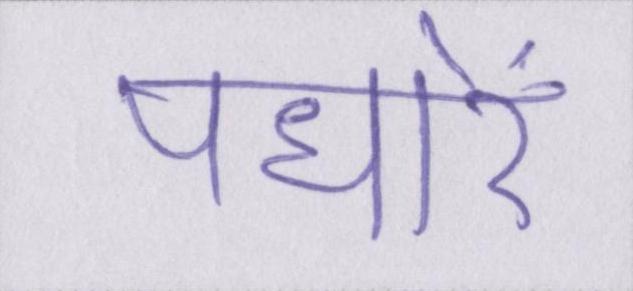 पधारें